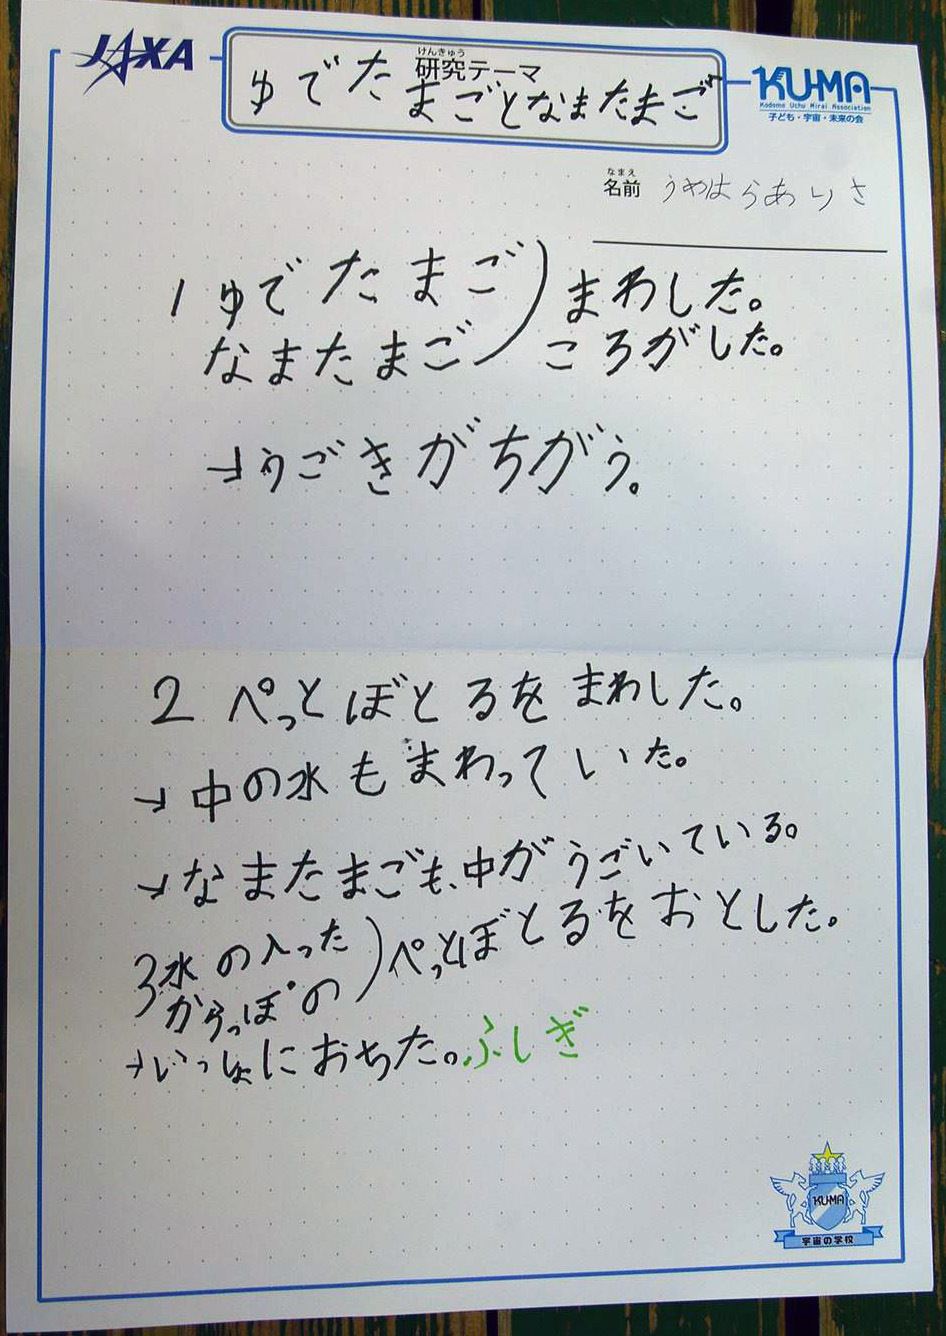 JAXA
けんきゅう
研究テーマ
ゆでたまごとなまたまご
KU-MA
Kodomo Uchu Mirai Association
子ども・宇宙・未来の会
なまえ
名前 うめはらありさ
1 ゆでたまご）まわした。
なまたまご ころがした。
→うごきがちがう。
2 ぺっとぼとるをまわした。
→中の水もまわっていた。
→なまたまごも、中がうごいている。
3水の入った）ぺっとぼとるをおとした。
からっぽの
→いっしょにおちた。ふしぎ
KU-MA
宇宙の学校